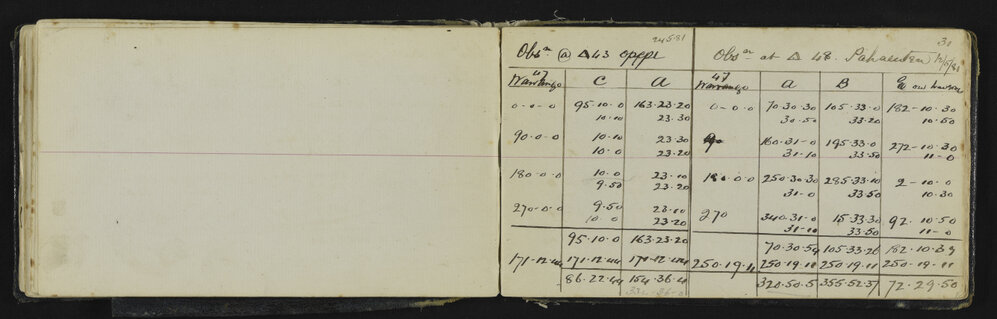 24.5.81
Obsn @ △ 43
47
C A
0-0-0 95-10-0 163-23-20
10-10 23-30
90-0-0 10-10 23-30
10-0 23-20
180-0-0 10-0 23-10
9-50 23-20
270-0-0 9-50 23-10
10-0 23-20
95-10-0 163-23-20
171-12-44 171-12-44 171-12-44
86-22-44 154-36-4
31
Obsn at △ 48.
47
A B
0-0-0 70-30-30 105-33-0 182-10-30
30-50 33-20 10-50
160-31-0 195-33-0 272-10-30
31-10 33-50 11-0
180-0-0 250-30-30 285-33-10 2-10-0
31-0 33-50 10-30
270 340-31-0 15-33-30 92-10-50
31-10 33-50 11-0
70-30-54 105-33-26 182-10-39
250-19-11 250-19-11 250-19-11 250-19-11
320-50-5 355-52-37 72-29-50